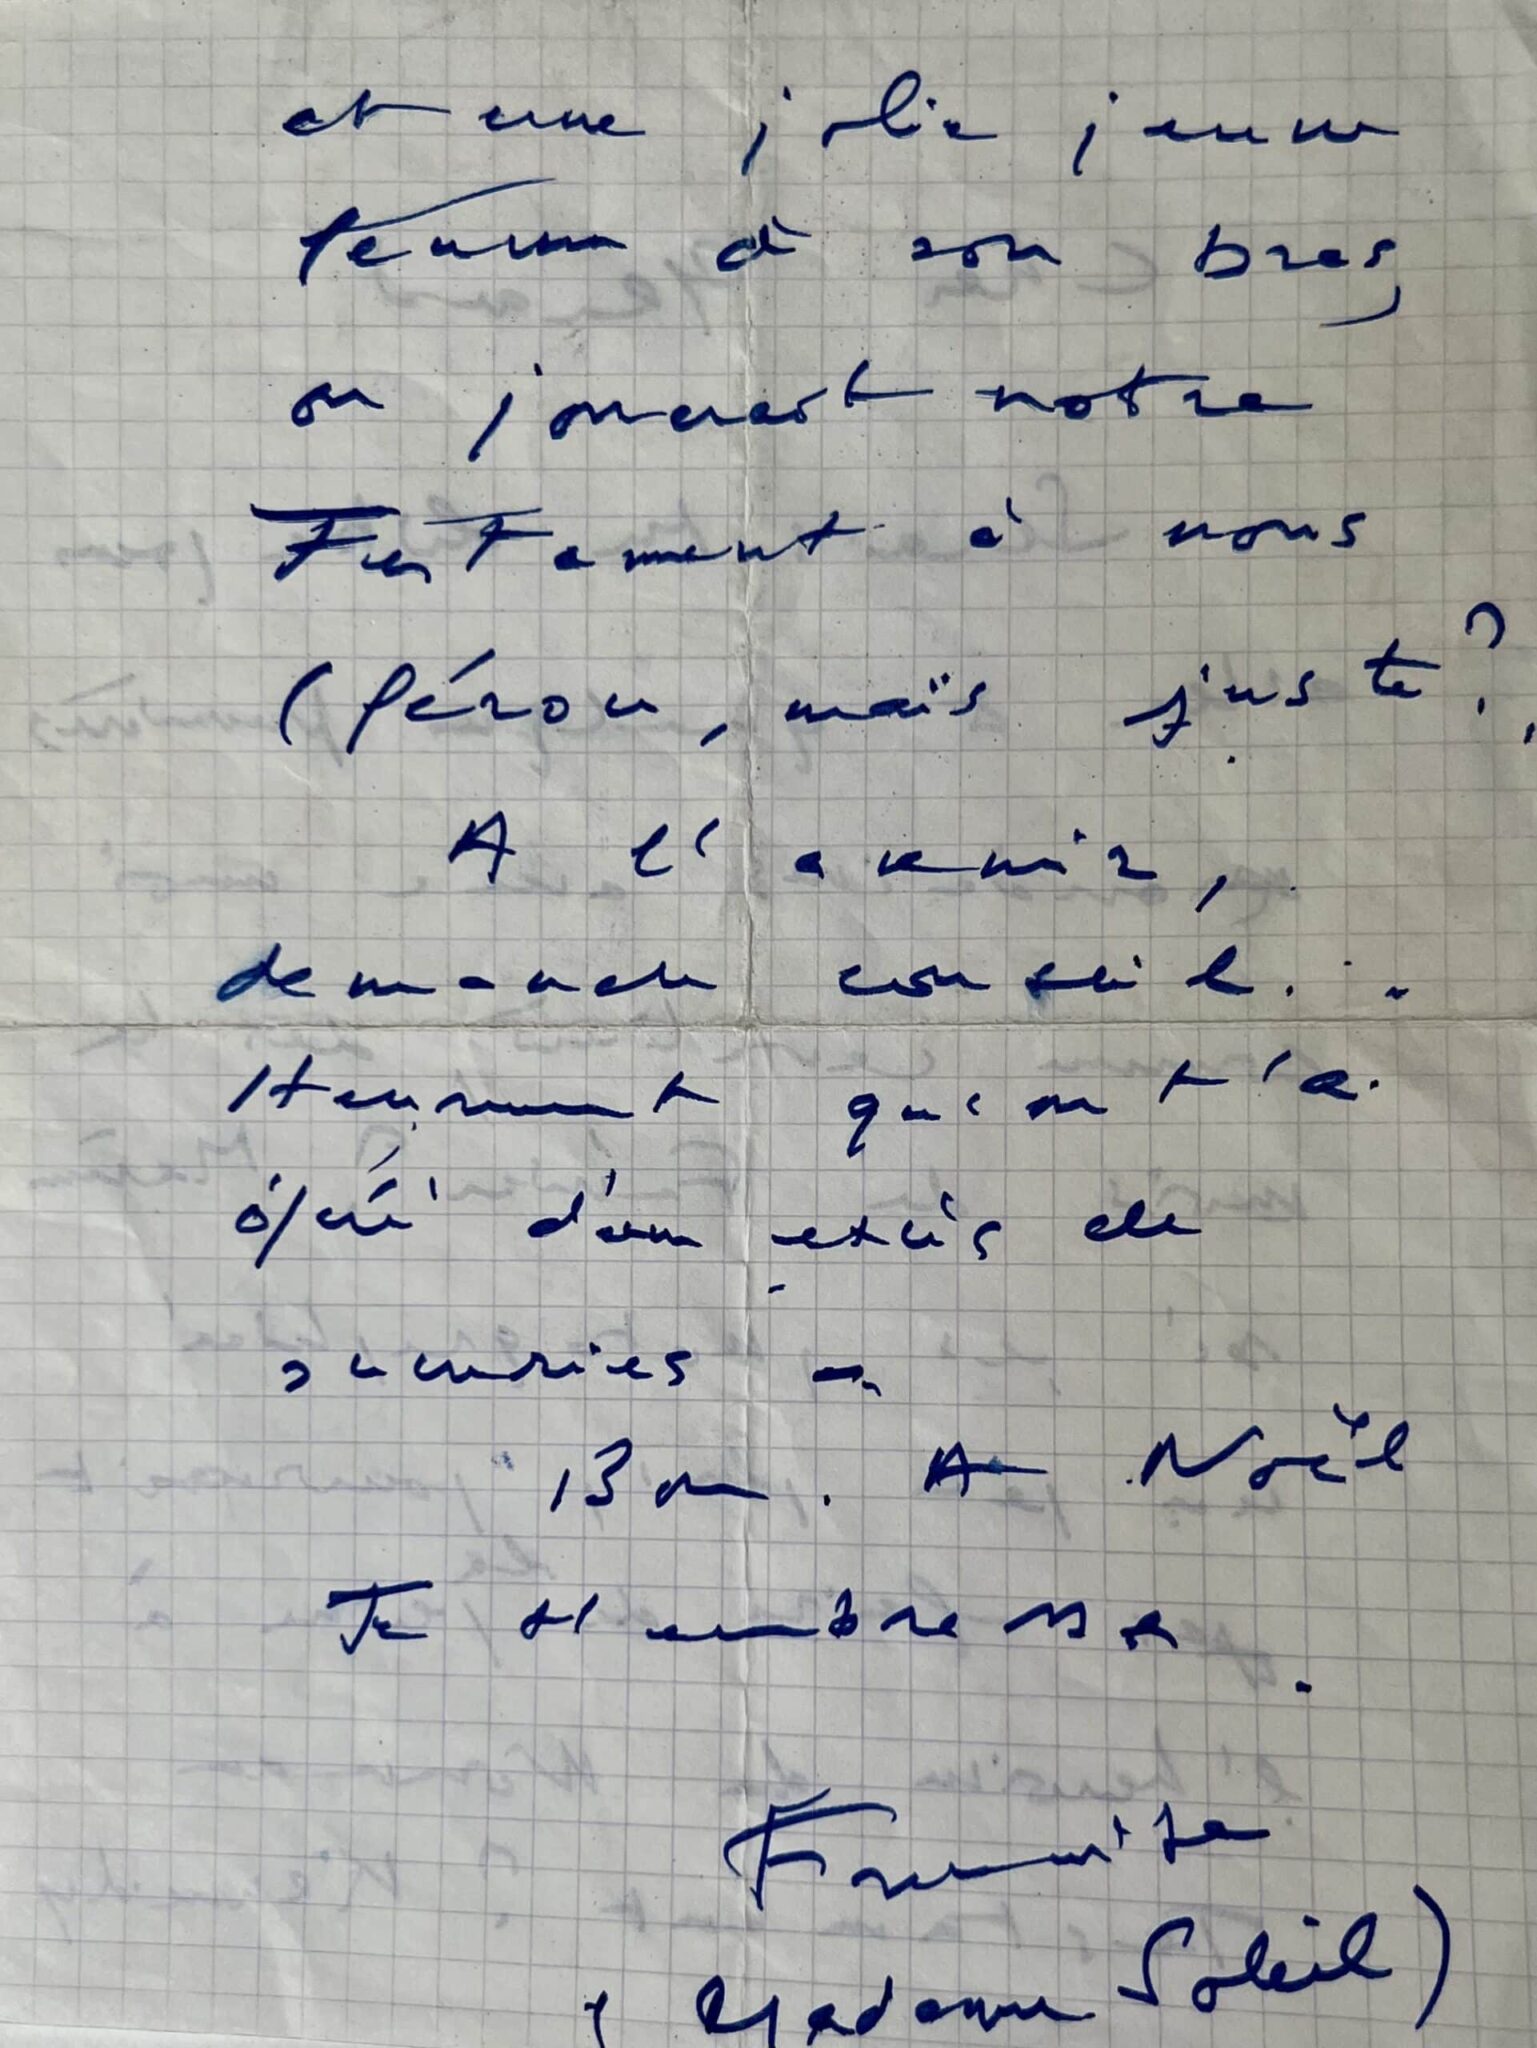 et une jolie jeune
femme à son bras,
on jouerait notre
Testament à nous
(féroce, mais juste ?,
A l'avenir,
demande conseil. .
Heureusement qu'on t'a
opéré d'un excès de
sucreries -
Bon. A Noël
Te t'embrasse.
(Madame Soleil)